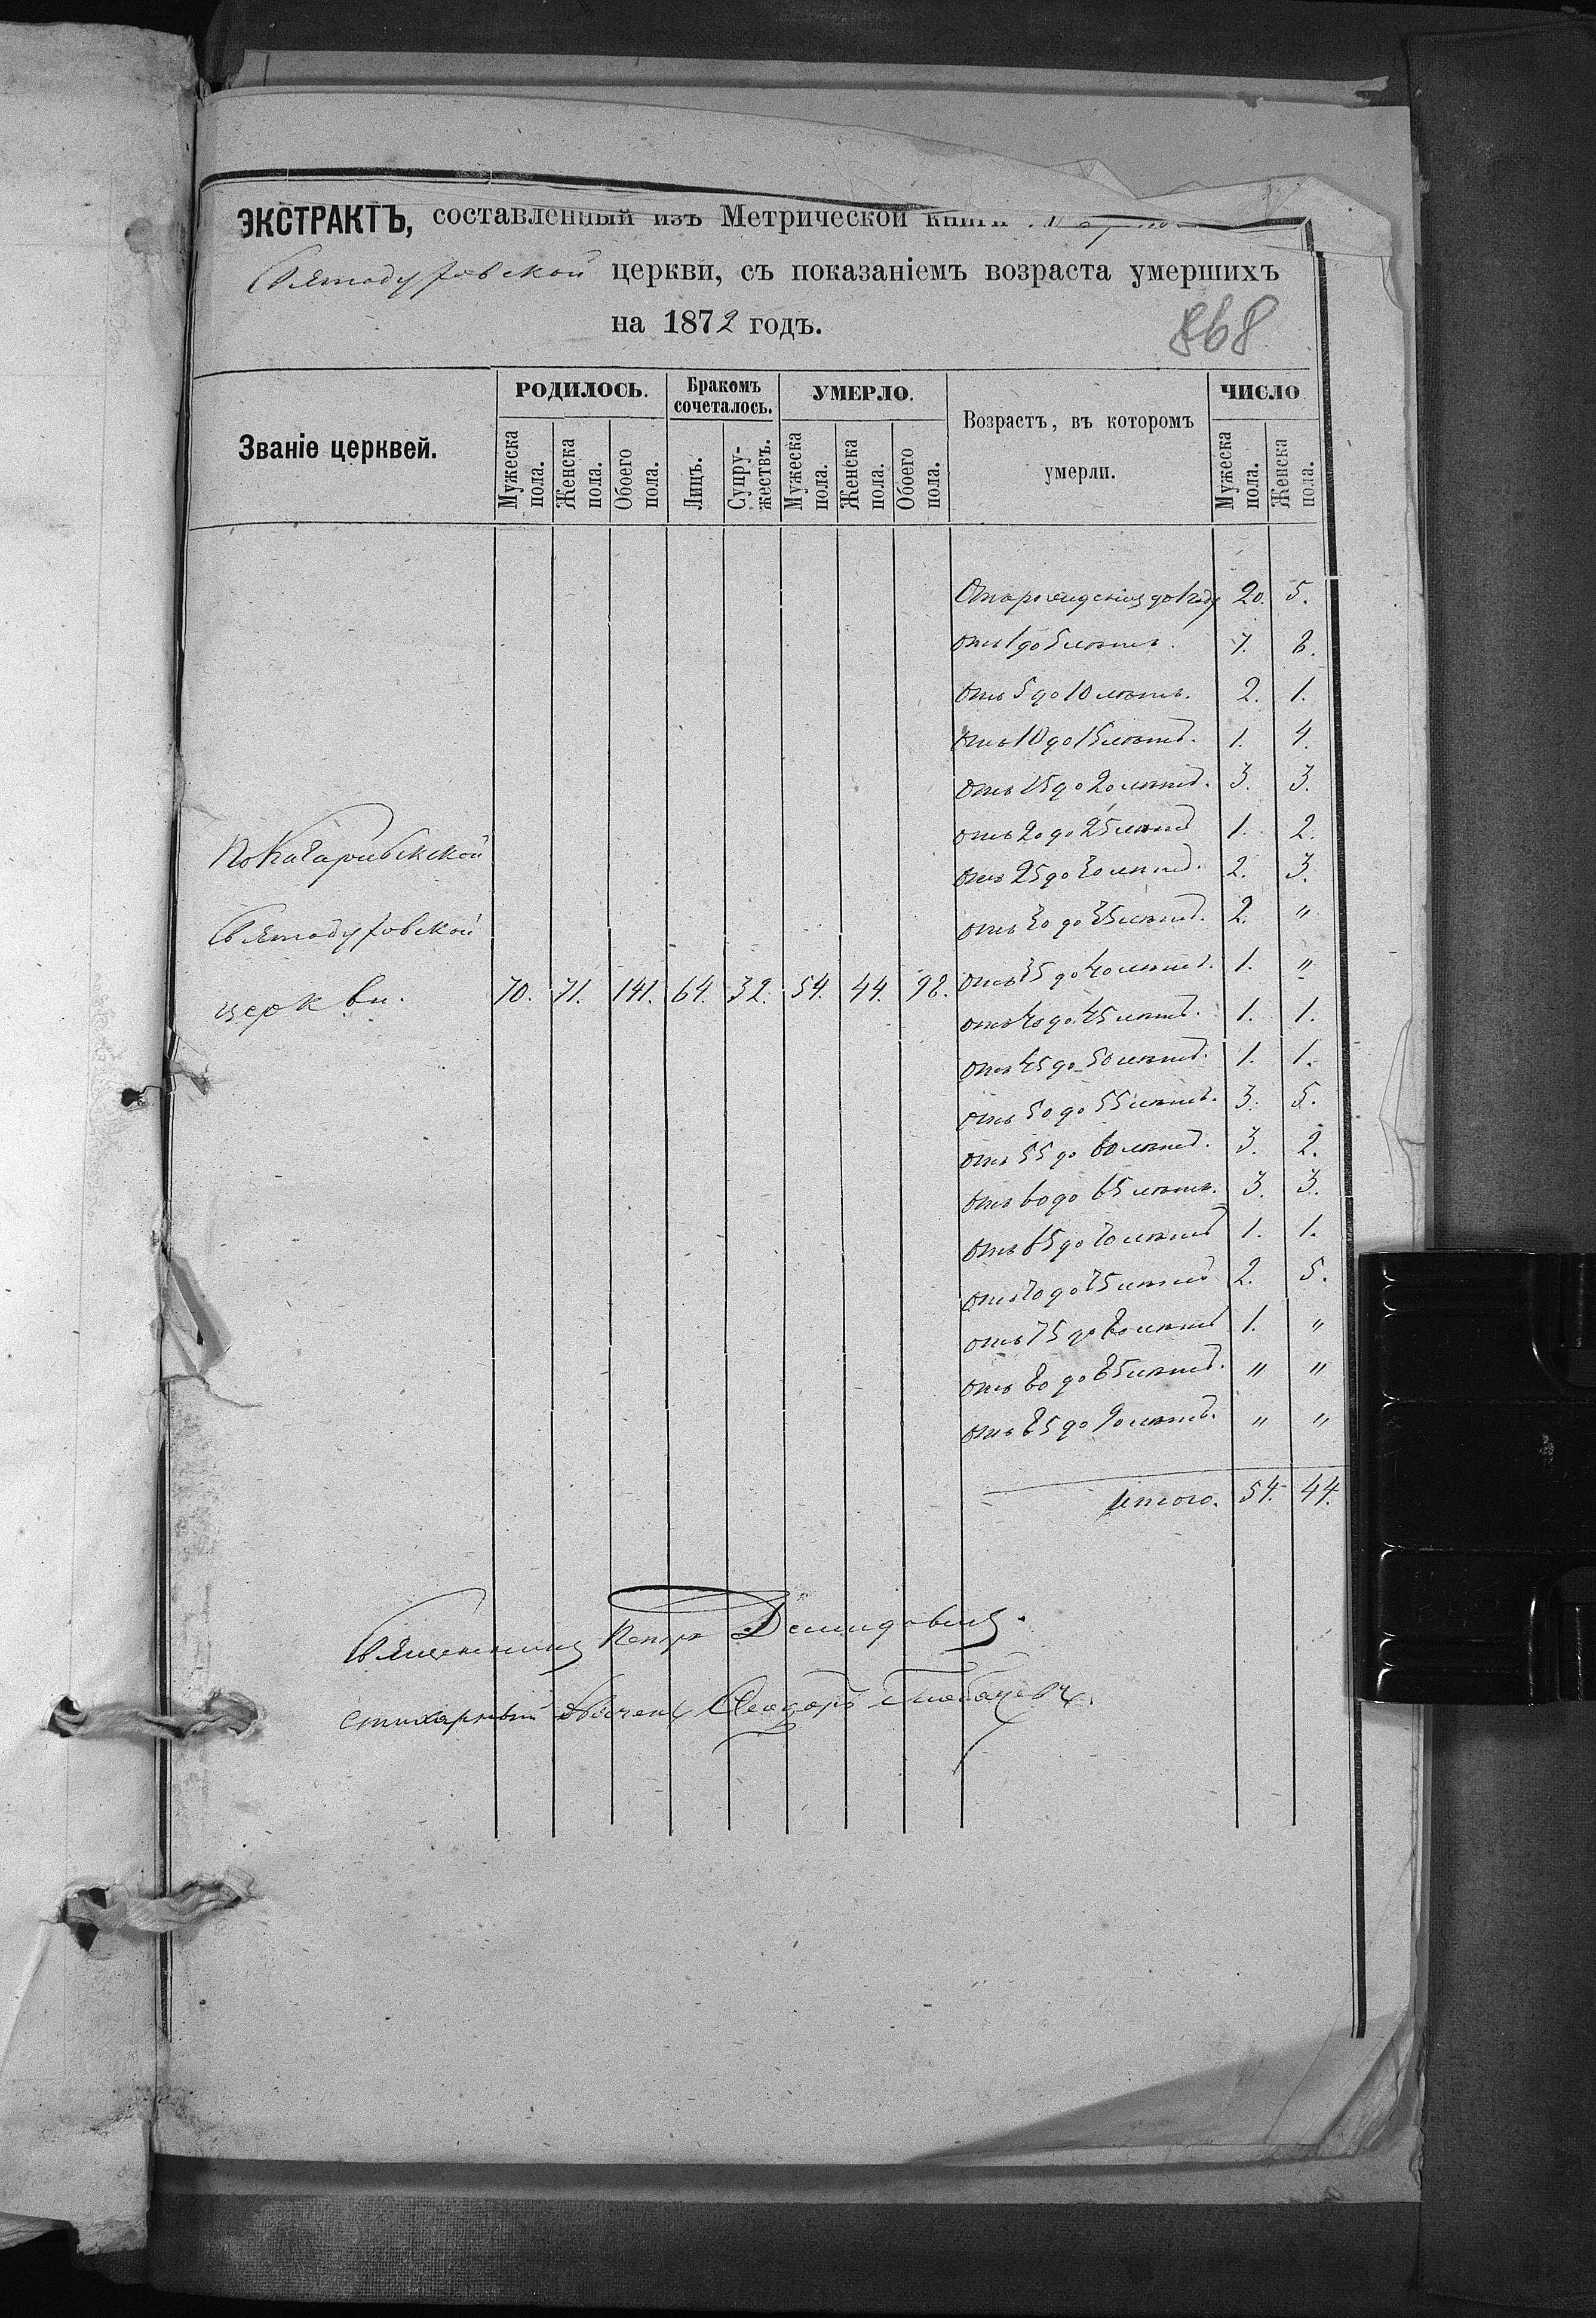 ЭКСТРАКТЪ, составленный изъ Метрической книги
Святодуховской церкви, съ показаніемъ возраста умершихъ
на 1872 годъ.
868
Званіе церквей.
РОДИЛОСЬ.
Мужеска пола.
Женска пола.
Обоего пола.
Бракомъ сочеталось.
Лицъ.
Супружествъ.
УМЕРЛО.
Мужеска пола.
Женска пола.
Обоего пола.
Возрастъ, въ которомъ умерли.
ЧИСЛО
Мужеска пола.
Женска пола.
Отъ рожденія до 1 года 20. 5.
отъ 1 до 5 лѣтъ. 7. 8.
отъ 5 до 10 лѣтъ. 2. 1.
отъ 10 до 15 лѣтъ. 1. 4.
отъ 15 до 20 лѣтъ. 3. 3.
отъ 20 до 25 лѣтъ 1. 2.
отъ 25 до 30 лѣтъ. 2. 3.
отъ 30 до 35 лѣтъ. 2. "
отъ 35 до 40 лѣтъ. 1. "
отъ 40 до 45 лѣтъ. 1. 1.
отъ 45 до 50 лѣтъ. 1. 1.
отъ 50 до 55 лѣтъ. 3. 5.
отъ 55 до 60 лѣтъ. 3. 2.
отъ 60 до 65 лѣтъ. 3. 3.
отъ 65 до 70 лѣтъ 1. 1.
отъ 70 до 75 лѣтъ 2. 5.
отъ 75 до 80 лѣтъ 1. "
отъ 80 до 85 лѣтъ. " "
отъ 85 до 90 лѣтъ. " "
Итого. 54. 44.
По
Святодуховской
церкви. 70. 71. 141. 64. 32. 54. 44. 98.
Священникъ Петръ Демидовичъ.
Стихарный Ѳеодоръ